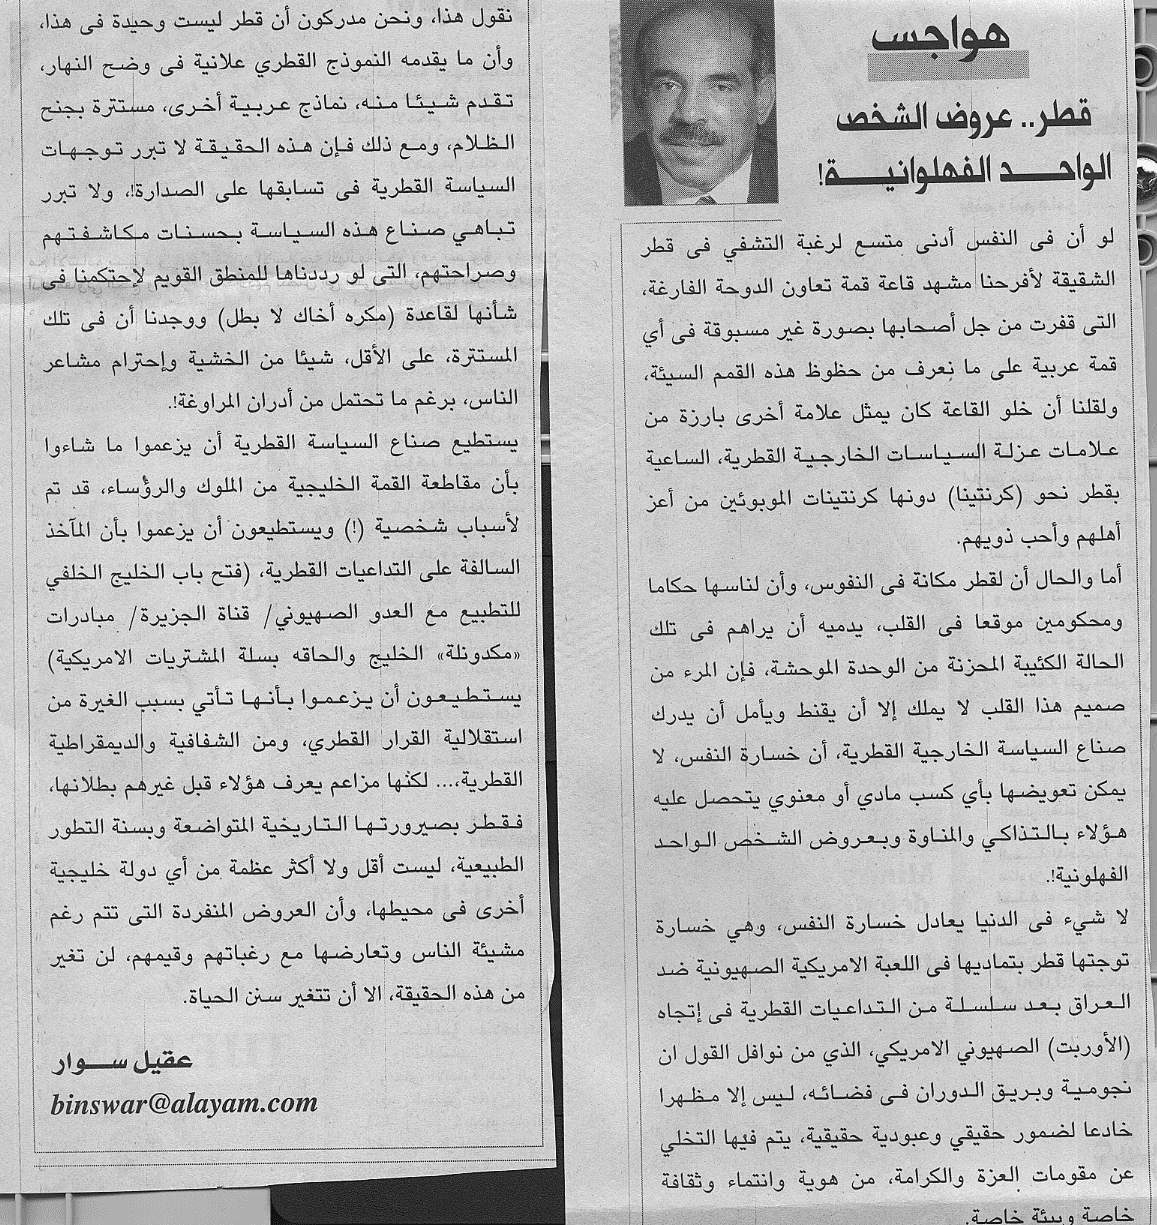 هواجس
قطر.. عروض الشخص
الواحد الفهلوانية!
لو أن فى النفس أدنى متسع لرغبة التشفي فى قطر
الشقيقة لأفرحنا مشهد قاعة قمة تعاون الدوحة الفارغة،
التى قفرت من جل أصحابها بصورة غير مسبوقة فى أي
قمة عربية على ما نعرف من حظوظ هذه القمم السيئة،
ولقلنا أن خلو القاعة كان يمثل علامة أخرى بارزة من
علامات عزلة السياسات الخارجية القطرية، الساعية
بقطر نحو (كرنتينا) دونها كرنتينات الموبوئين من أعز
أهلهم وأحب ذويهم.
أما والحال أن لقطر مكانة فى النفوس، وأن لناسها حكاما
ومحكومين موقعا فى القلب، يدميه أن يراهم فى تلك
الحالة الكئيبة المحزنة من الوحدة الموحشة، فإن المرء من
صميم هذا القلب لا يملك إلا أن يقنط ويأمل أن يدرك
صناع السياسة الخارجية القطرية، أن خسارة النفس، لا
يمكن تعويضها بأي كسب مادي أو معنوي يتحصل عليه
هؤلاء بالتذاكي والمناوة وبعروض الشخص الواحد
الفهلونية!.
لا شيء فى الدنيا يعادل خسارة النفس، وهي خسارة
توجتها قطر بتماديها فى اللعبة الامريكية الصهيونية ضد
العراق بعد سلسلة من التداعيات القطرية فى إتجاه
(الأوربت) الصهيوني الامريكي، الذي من نوافل القول ان
نجومية وبريق الدوران فى فضائه، ليس إلا مظهرا
خادعا لضمور حقيقي وعبودية حقيقية، يتم فيها التخلي
عن مقومات العزة والكرامة، من هوية وانتماء وثقافة
خاصة وبيئة خاصة.
نقول هذا، ونحن مدركون أن قطر ليست وحيدة فى هذا،
وأن ما يقدمه النموذج القطري علانية فى وضح النهار،
تقدم شيئا منه، نماذج عربية أخرى، مستترة بجنح
الظلام، ومع ذلك فإن هذه الحقيقة لا تبرر توجهات
السياسة القطرية فى تسابقها على الصدارة!، ولا تبرر
تباهي صناع هذه السياسة بحسنات مكاشفتهم
وصراحتهم، التى لو رددناها للمنطق القويم لإحتكمنا فى
شأنها لقاعدة (مكره أخاك لا بطل) ووجدنا أن فى تلك
المستترة، على الأقل، شيئا من الخشية وإحترام مشاعر
الناس، برغم ما تحتمل من أدران المراوغة!.
يستطيع صناع السياسة القطرية أن يزعموا ما شاءوا
بأن مقاطعة القمة الخليجية من الملوك والرؤساء، قد تم
لأسباب شخصية (!) ويستطيعون أن يزعموا بأن المآخذ
السالفة على التداعيات القطرية، (فتح باب الخليج الخلفي
للتطبيع مع العدو الصهيوني/ قناة الجزيرة/ مبادرات
«مكدونلة» الخليج والحاقه بسلة المشتريات الامريكية)
يستطيعون أن يزعموا بأنها تأتي بسبب الغيرة من
استقلالية القرار القطري، ومن الشفافية والديمقراطية
القطرية،... لكنها مزاعم يعرف هؤلاء قبل غيرهم بطلانها،
فقطر بصيرورتها التاريخية المتواضعة وبسنة التطور
الطبيعية، ليست أقل ولا أكثر عظمة من أي دولة خليجية
أخرى فى محيطها، وأن العروض المنفردة التى تتم رغم
مشيئة الناس وتعارضها مع رغباتهم وقيمهم، لن تغير
من هذه الحقيقة، الا أن تتغير سنن الحياة.
عقيل سوار
binswar@alayam.com